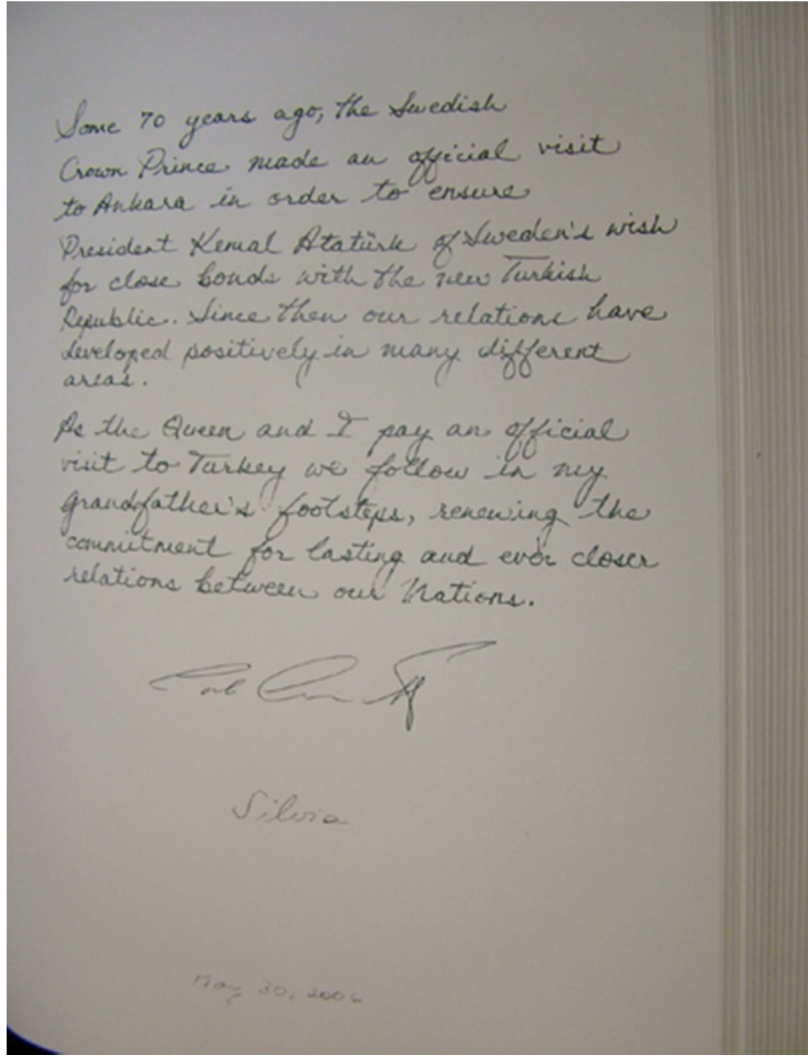 Some 70 years ago, the Swedish
Crown Prince made an official visit
to Ankara in order to ensure
President Kemal Atatürk of Sweden's wish
for close bonds with the new Turkish
Republic. Since then our relations have
developed positively in many different
areas.
As the Queen and I pay an official
visit to Turkey we follow in my
grandfather's footsteps, renewing the
commitment for lasting and ever closer
relations between our Nations.
Carl Gustaf
Silvia
May 30, 2006